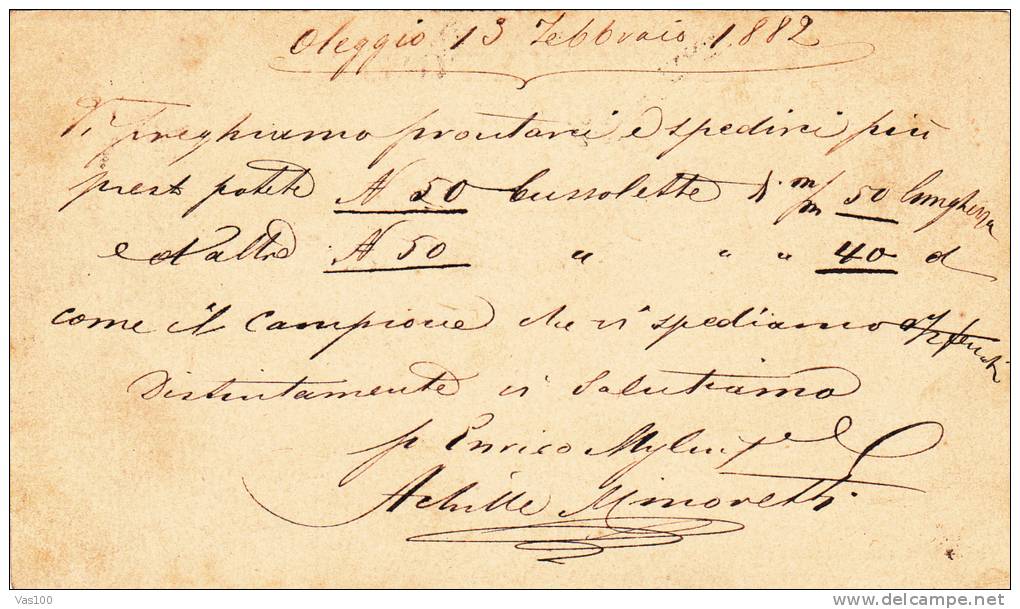 Oleggio 13 Febbraio 1882
Vi preghiamo prontarci e spedirci più
prest potete N 50 bussolette di m/m 50 lunghezza
e d'altre N 50 " " " 40 d
come il campione che vi spediamo
Distintamente vi salutiamo
p Enrico Mylius
Achille Minoretti
Vas100
delcampe.net